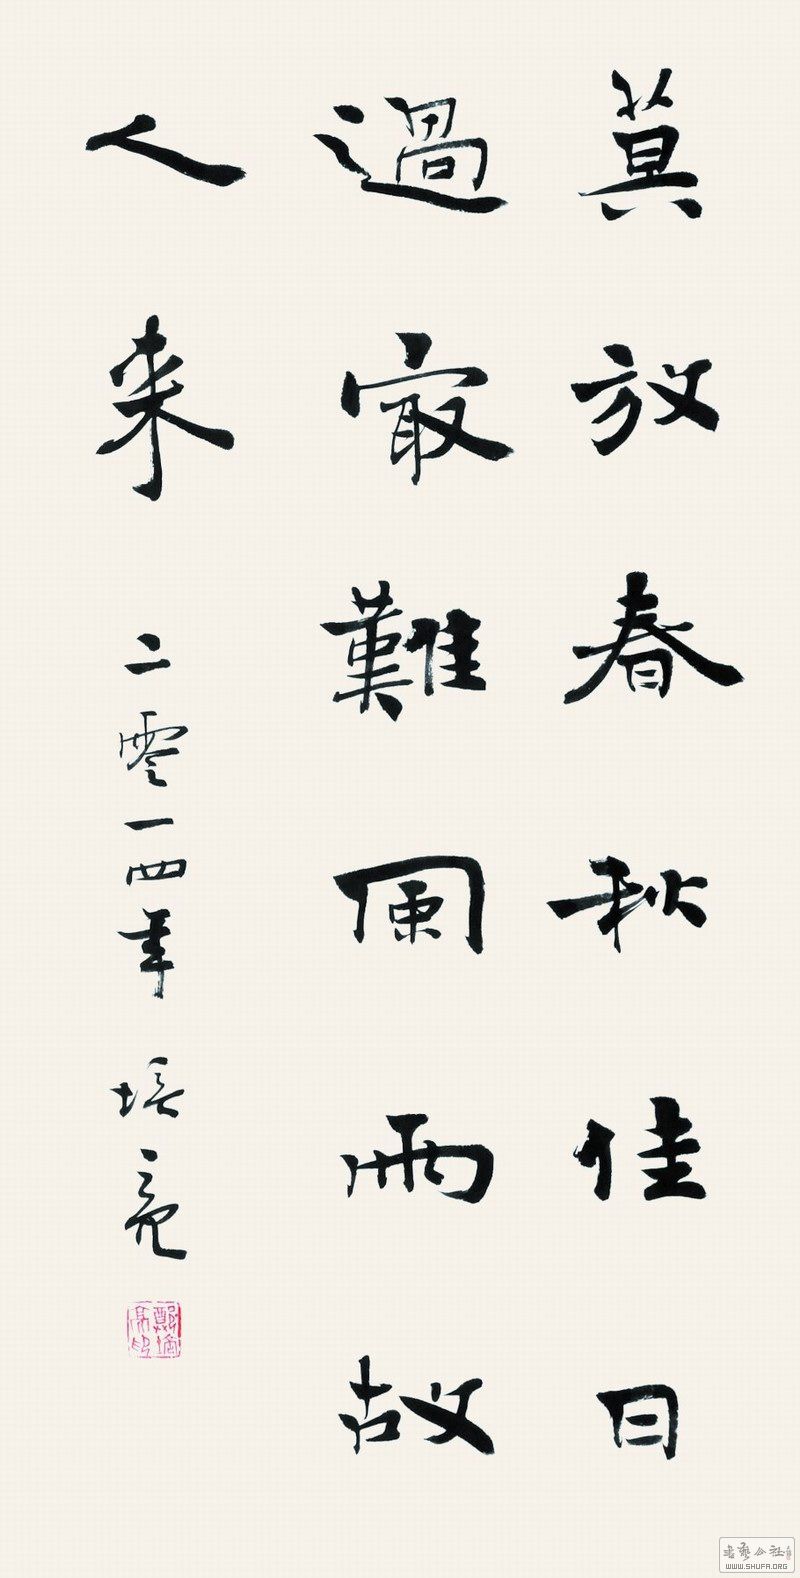 莫放春秋佳日
過冣難風雨故
人来
二零一四年 培亮
書藝公社
WWW.SHUFA.ORG